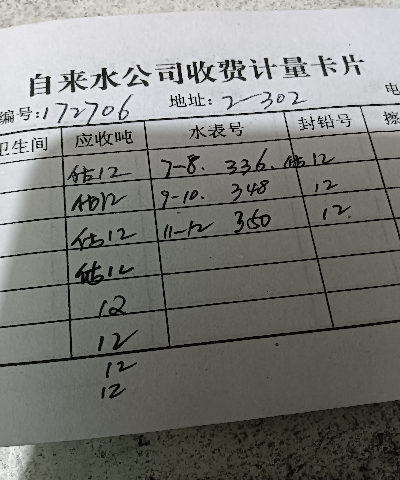 自来水公司收费计量卡片
编号:172706 地址: 2-302 电
卫生间 应收吨 水表号 封铅号 擦
估12 7-8. 336. 估12
估12 9-10. 348 12
估12 11-12. 360 12
估12
12
12
12
12